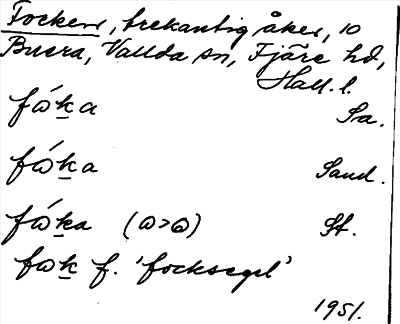 Focken, trekantig åker, 10
Buera, Vallda sn, Fjäre hd,
Hall. l.
fɷ́ka Sa.
fɷ́ka Sand.
fɷ́ka (ɷ>ɷ) St.
fɷk f. 'focksegel'
1951.